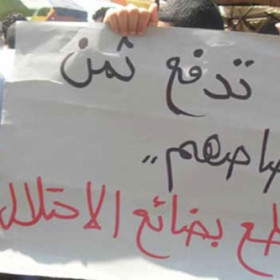 تدفع ثمن
صاصهم,,
طع بضائع الاحتلال